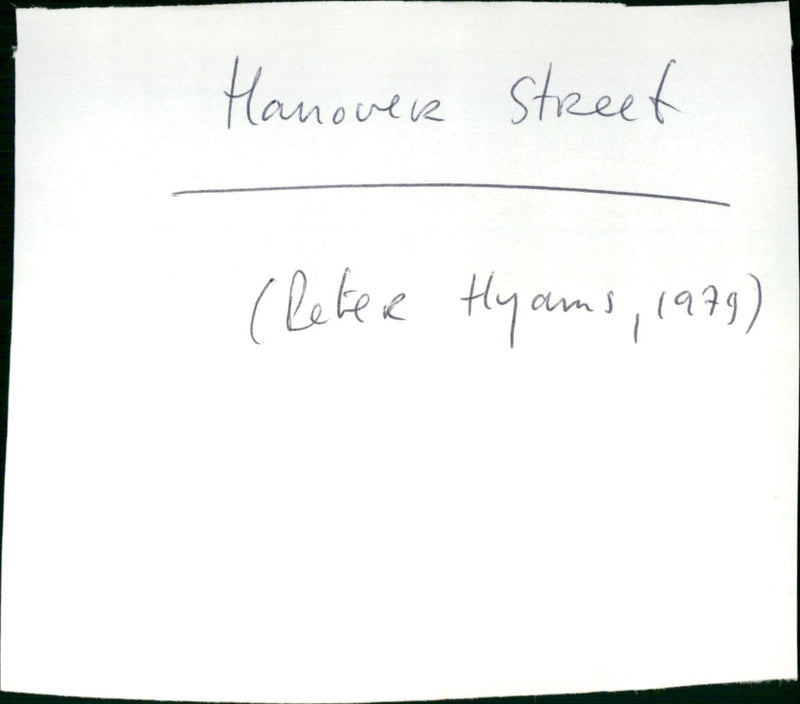 Hanover Street
(Peter Hyams, 1979)